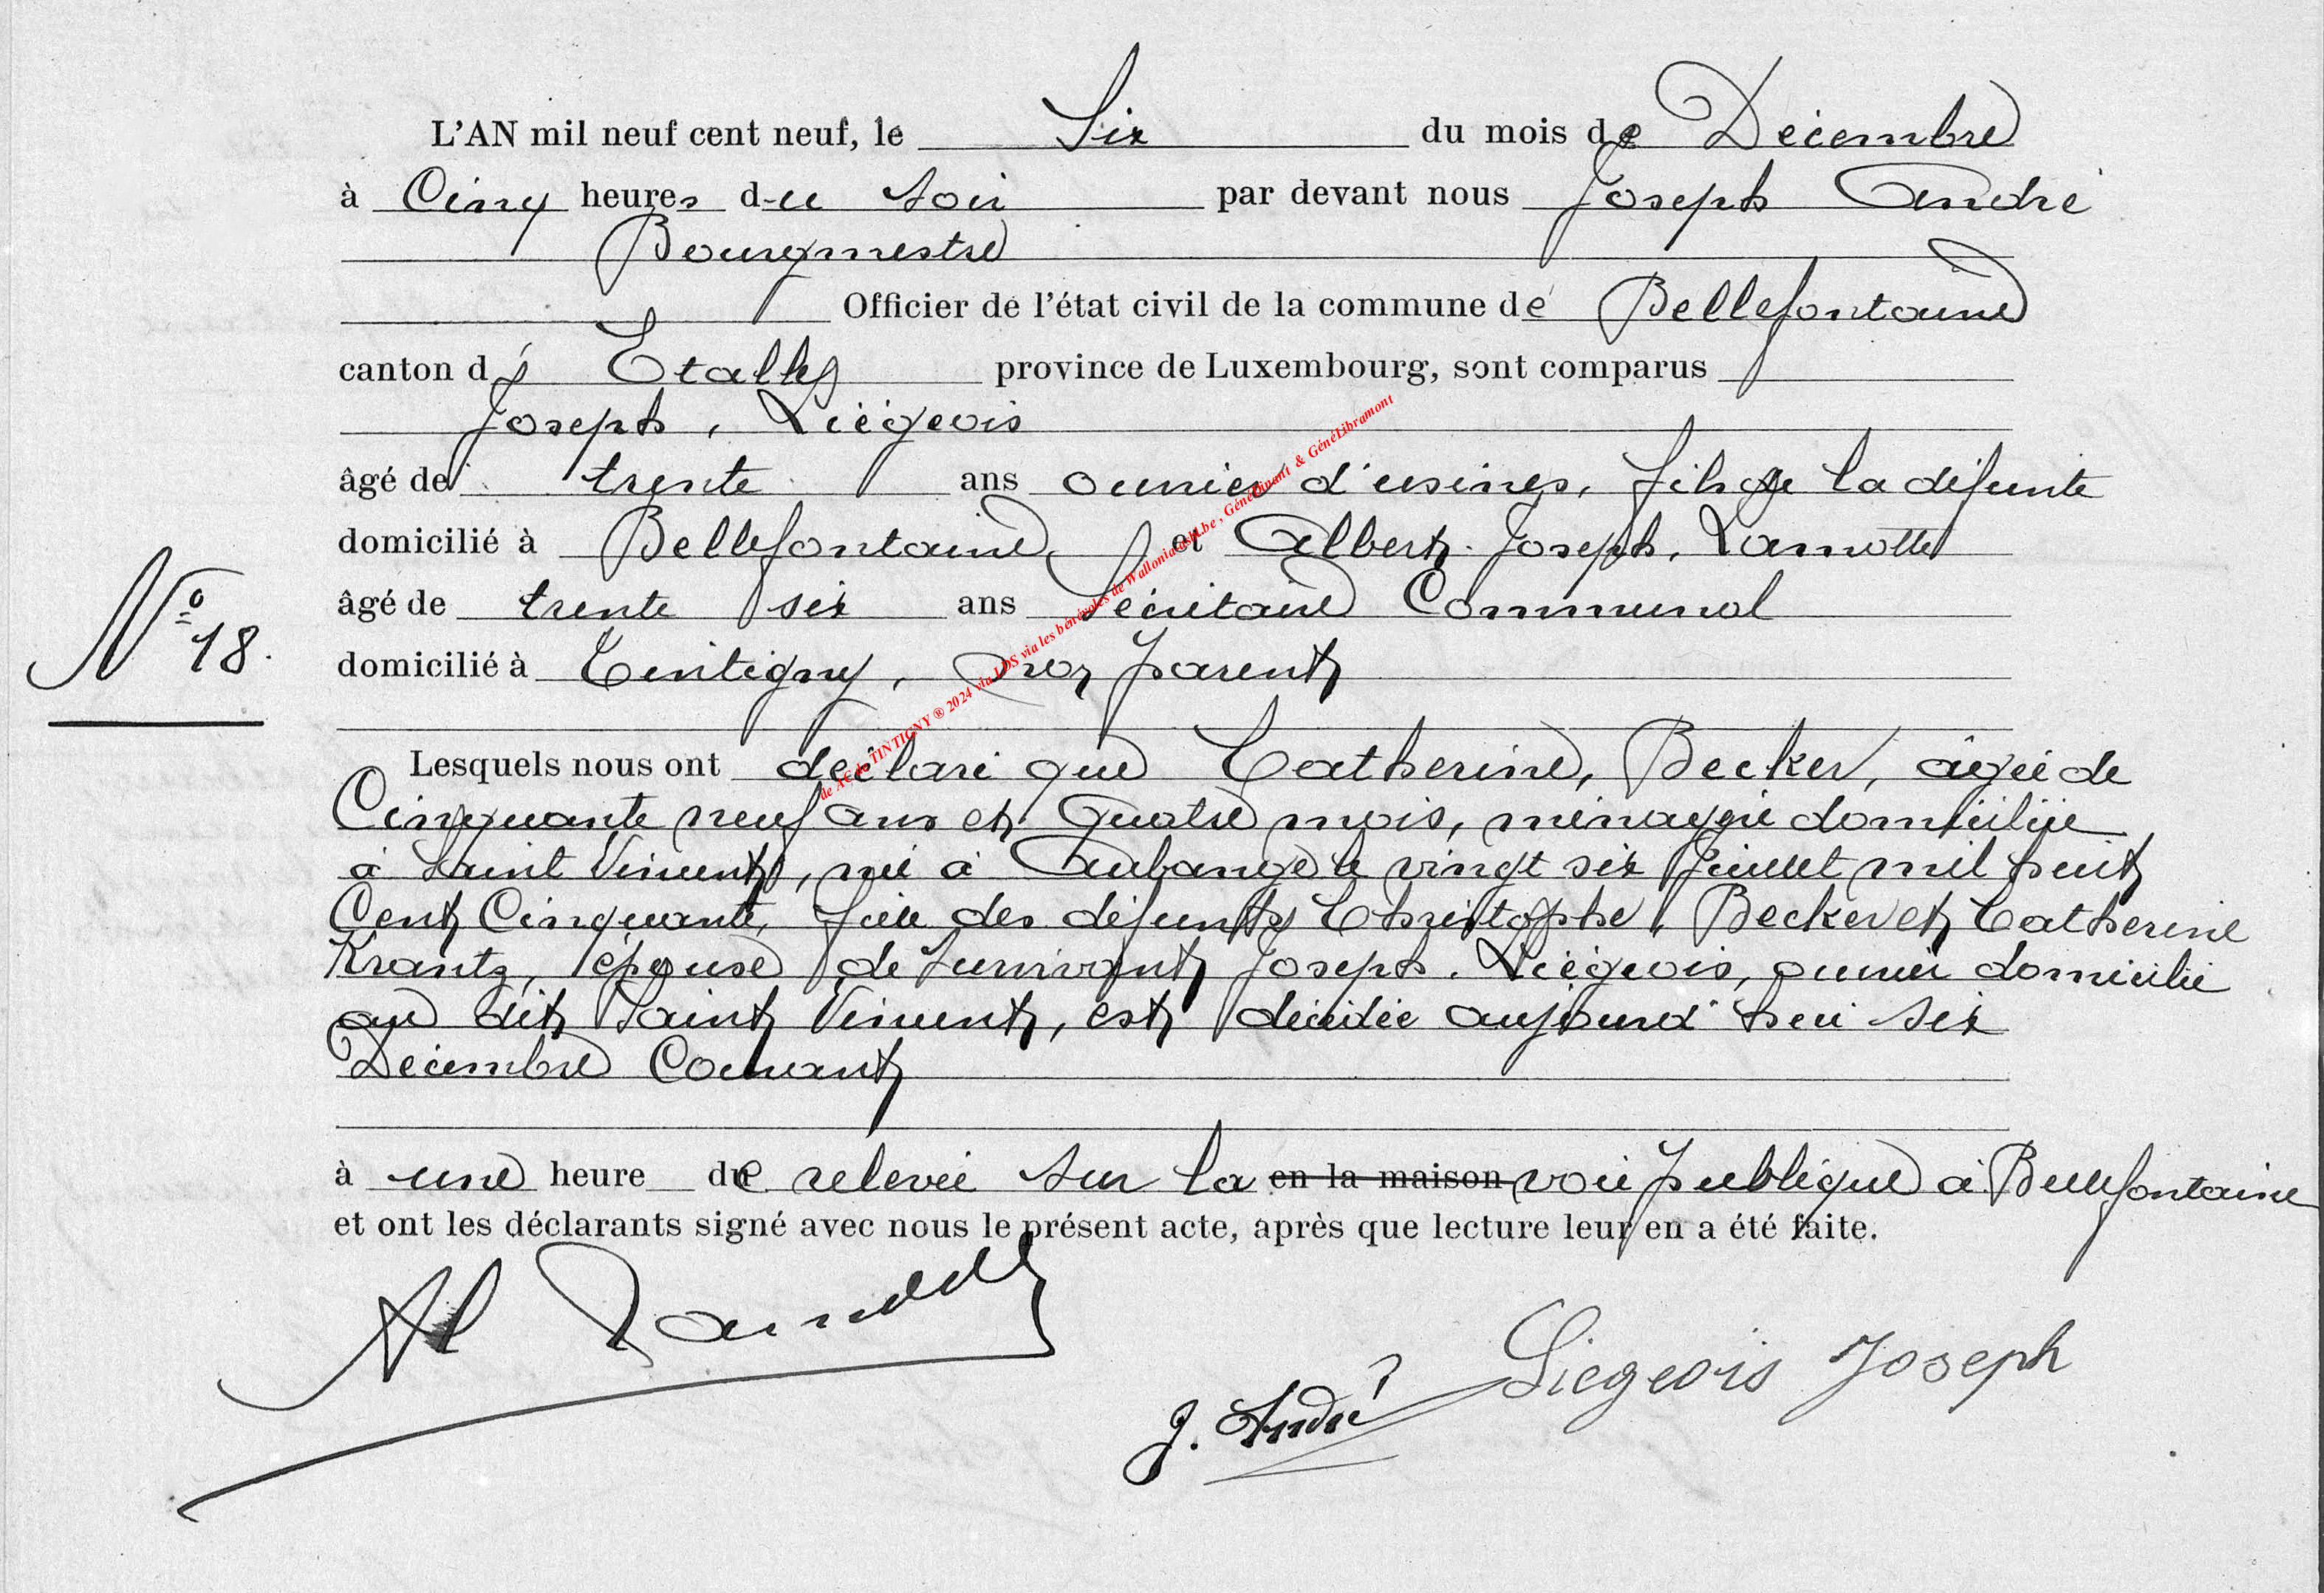 L'AN mil neuf cent neuf, le Six du mois de Décembre
à Cinq heures du soir par devant nous Joseph André
Bourgmestre
Officier de l'état civil de la commune de Bellefontaine
canton de Etalle province de Luxembourg, sont comparus
Joseph, Liégeois
âgé de trente ans ouvrier d'usines, fils de la défunte
domicilié à Bellefontaine et Albert Joseph, Lamotte
âgé de trente six ans Sécrétaire Communal
domicilié à Tintigny, non parent
N° 18.
Lesquels nous ont déclaré que Catherine, Becker, âgée de
Cinquante neuf ans et Quatre mois, ménagère domiciliée
à Saint Vincent, née à Aubange le vingt six Juillet mil huit
Cent Cinquante, fille des défunts Christophe, Becker et Catherine
Krantz, épouse de survivant Joseph. Liégeois, ouvrier domicilié
au dit Saint Vincent, est décédée aujourd'hui six
Décembre Courant
à une heure de relevée sur la en la maison voie publique à Bellefontaine
et ont les déclarants signé avec nous le présent acte, après que lecture leur en a été faite.
Al Lamotte
J. André
Liegeois Joseph
de AC de TINTIGNY ® 2024 via LDS via les bénévoles de Wallonia asbl.be, GénéDinant & GénéLibramont